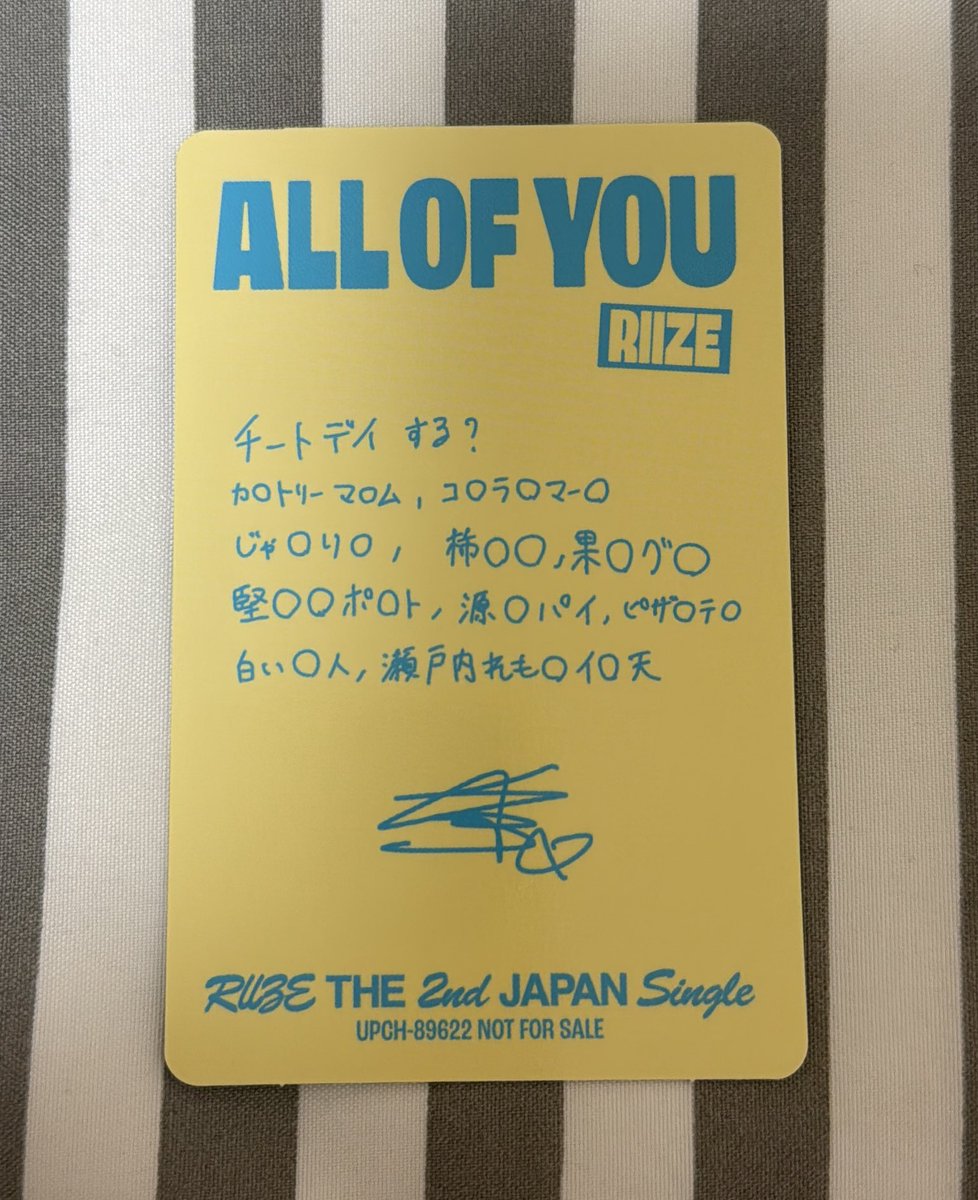 ALL OF YOU
RIIZE
チートデイ する?
カ〇トリーマ〇ム, コ〇ラ〇マー〇
じゃ〇り〇, 柿〇〇, 果〇グ〇
堅〇〇ポ〇ト, 源〇パイ, ピザ〇テ〇
白い〇人, 瀬戸内れも〇イ〇天
RIIZE THE 2nd JAPAN Single
UPCH-89622 NOT FOR SALE